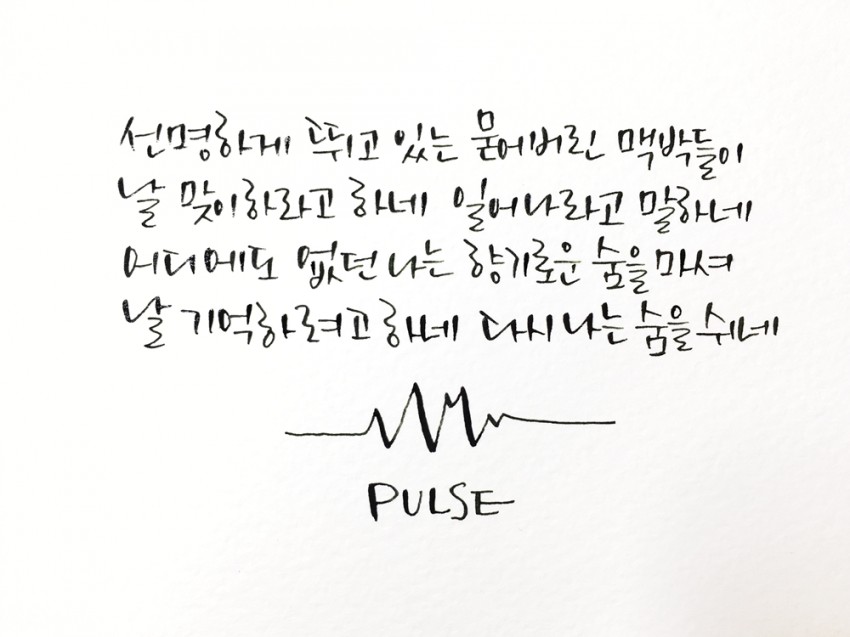 선명하게 뛰고 있는 묻어버린 맥박들이
날 맞이하라고 하네 일어나라고 말하네
어디에도 없던 나는 향기로운 숨을 마셔
날 기억하려고 하네 다시 나는 숨을 쉬네
PULSE